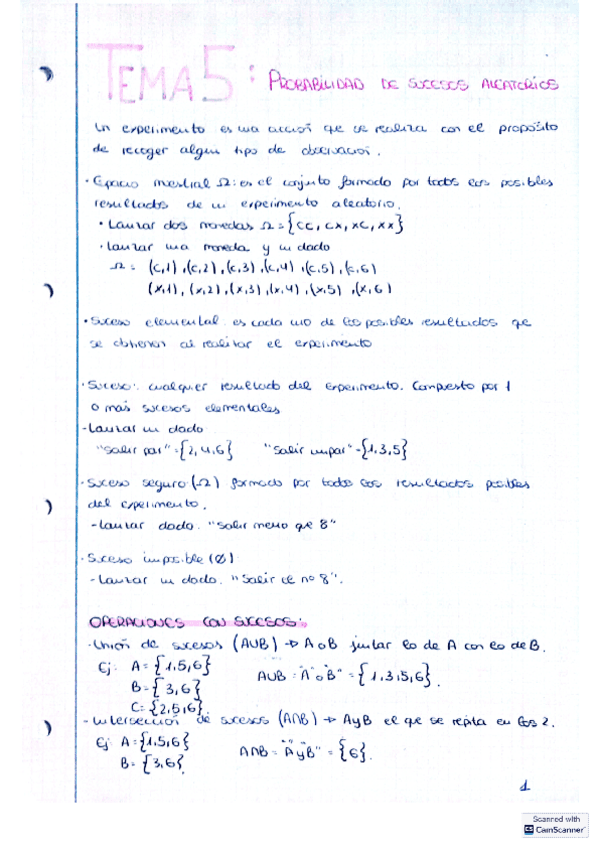 TEMA 5: PROBABILIDAD DE SUCESOS ALEATORIOS
Un experimento es una acción que se realiza con el propósito
de recoger algún tipo de observación.
· Espacio muestral Ω: es el conjunto formado por todos los posibles
resultados de un experimento aleatorio.
• Lanzar dos monedas Ω = {CC, CX, XC, XX}
· Lanzar una moneda y un dado
Ω = (C,1), (C,2), (C,3), (C,4), (C,5), (C,6)
(X,1), (X,2), (X,3), (X,4), (X,5), (X,6)
· Suceso elemental: es cada uno de los posibles resultados que
se obtienen al realizar el experimento
· Suceso: cualquier resultado del experimento. Compuesto por 1
o más sucesos elementales
- Lanzar un dado
"Salir par" = {2,4,6} "Salir impar" = {1,3,5}
· Suceso seguro (Ω) formado por todos los resultados posibles
del experimento.
- Lanzar dado. "Salir menor que 8"
· Suceso imposible (Ø)
- Lanzar un dado. "Salir el nº 8".
OPERACIONES CON SUCESOS:
· Unión de sucesos (AUB) → A o B juntar lo de A con lo de B.
Ej: A = {1,5,6} AUB = "A o B" = {1,3,5,6}.
B = {3,6}
C = {2,5,6}
- Intersección de sucesos (A∩B) → A y B el que se repita en los 2.
Ej A = {1,5,6} A∩B = "A y B" = {6}.
B = {3,6}
1
Scanned with
CS CamScanner